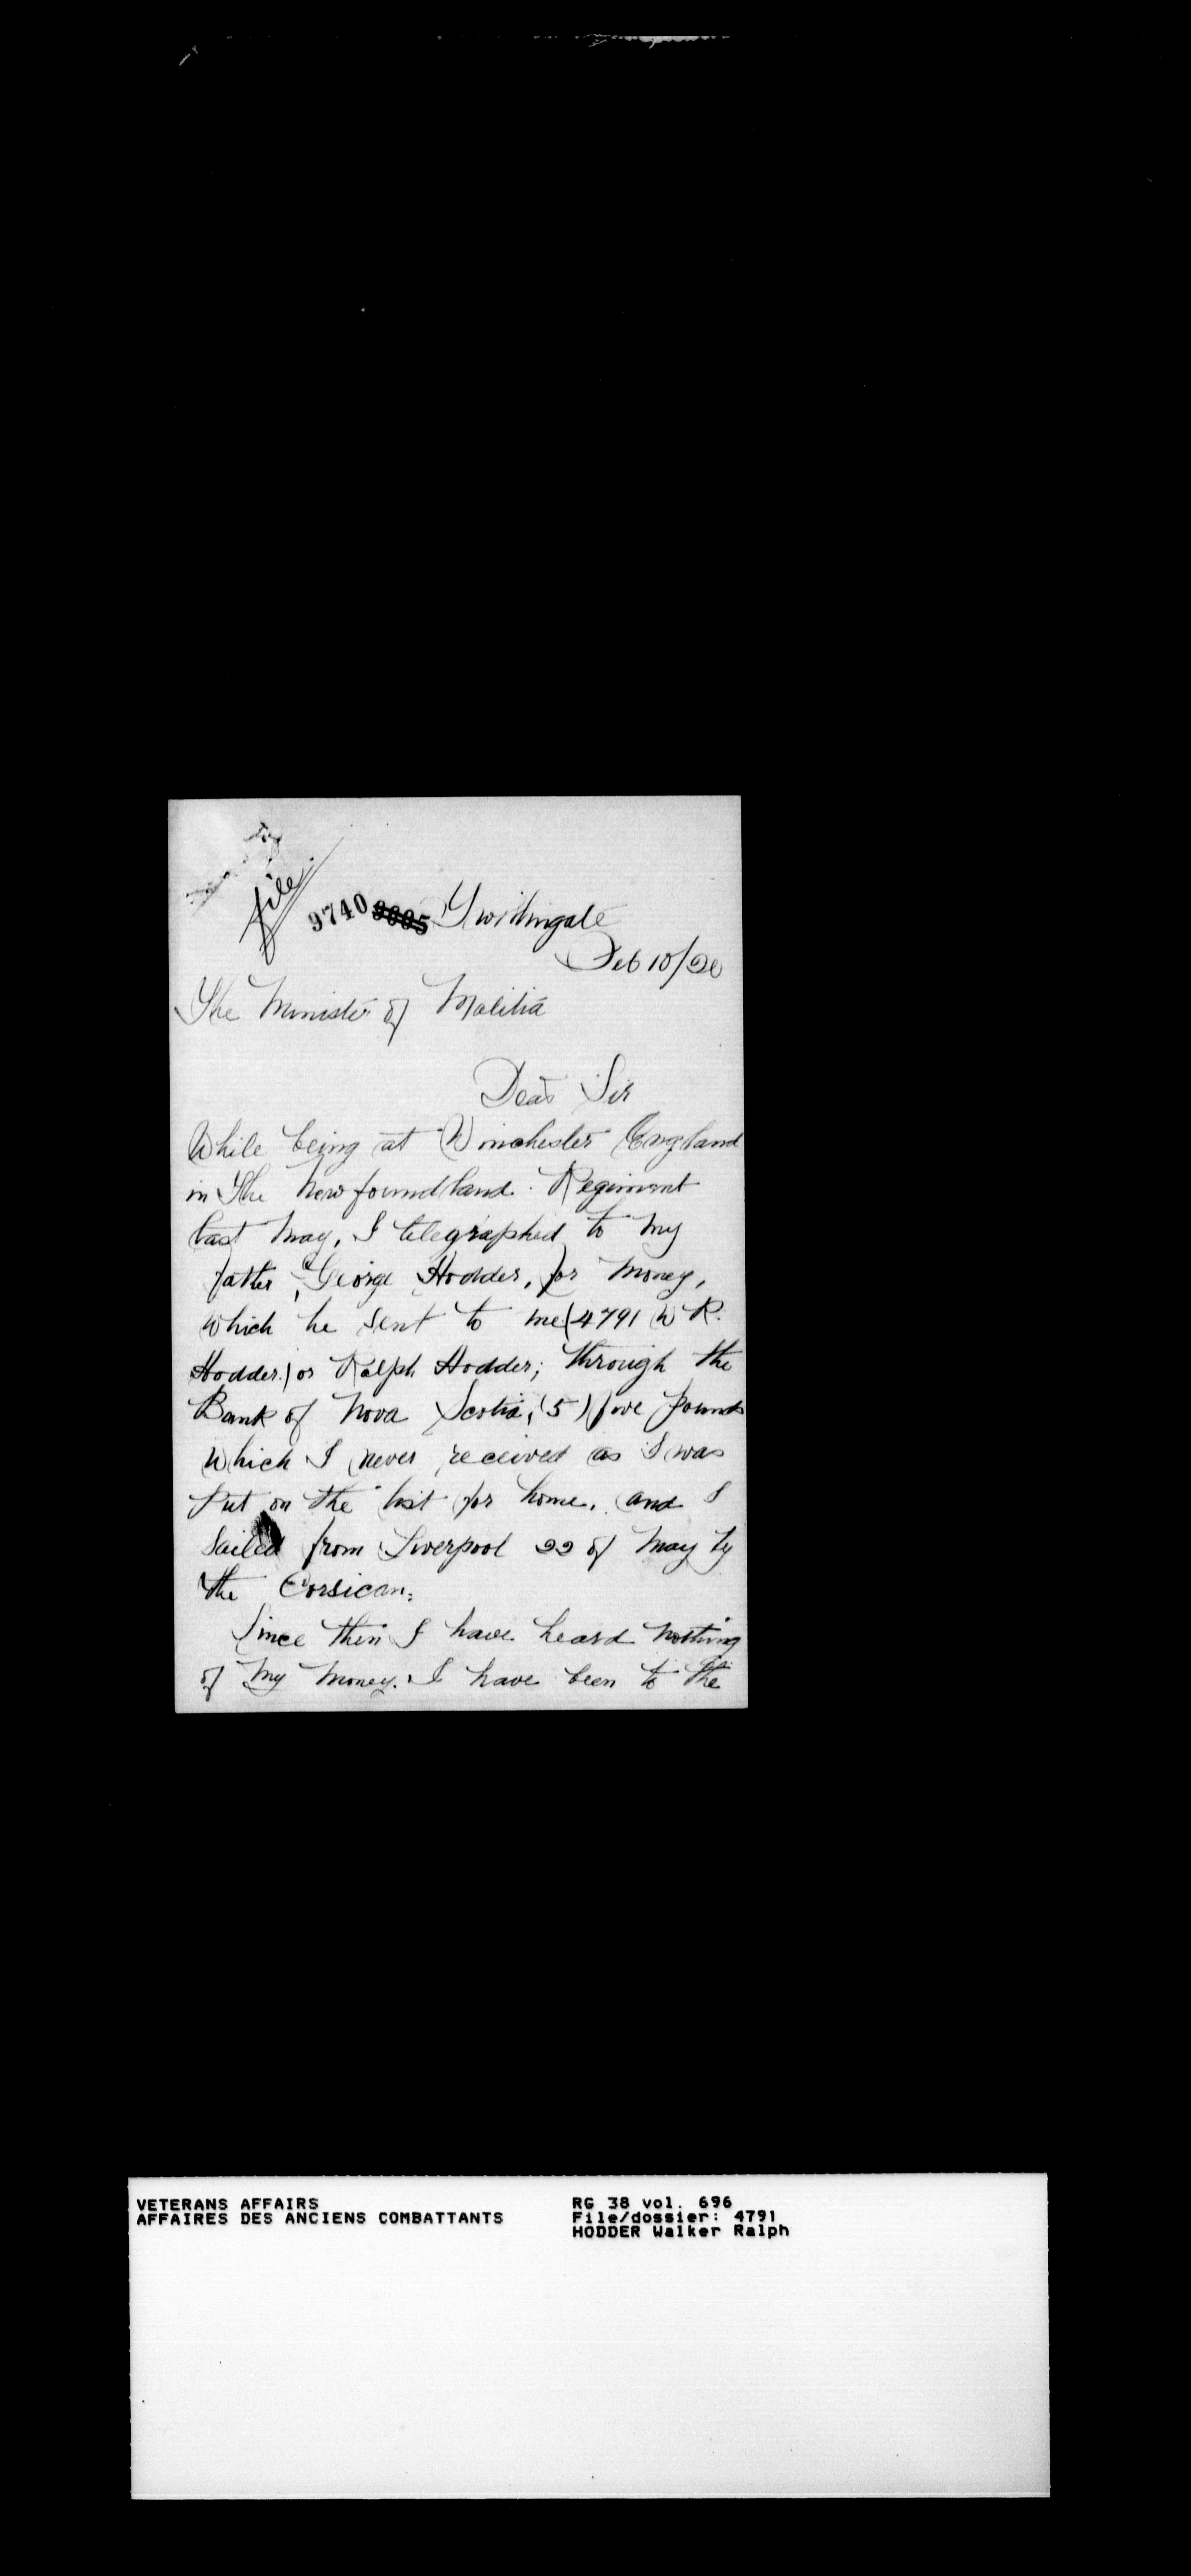 file
9740 9005 Twillingate
Feb 10/20
The Minister of Malitia
Dear Sir
While being at Winchester England
in The Newfoundland Regiment
last May, I telegraphed to my
father, George Hodder, for money,
which he sent to me (4791 W R.
Hodder) or Ralph Hodder; through the
Bank of Nova Scotia, (5) five pounds
which I never received as I was
put on the list for home, and I
sailed from Liverpool 22 of May by
the Corsican.
Since then I have heard nothing
of my money. I have been to the
VETERANS AFFAIRS
AFFAIRES DES ANCIENS COMBATTANTS
RG 38 vol. 696
File/dossier: 4791
HODDER Walker Ralph